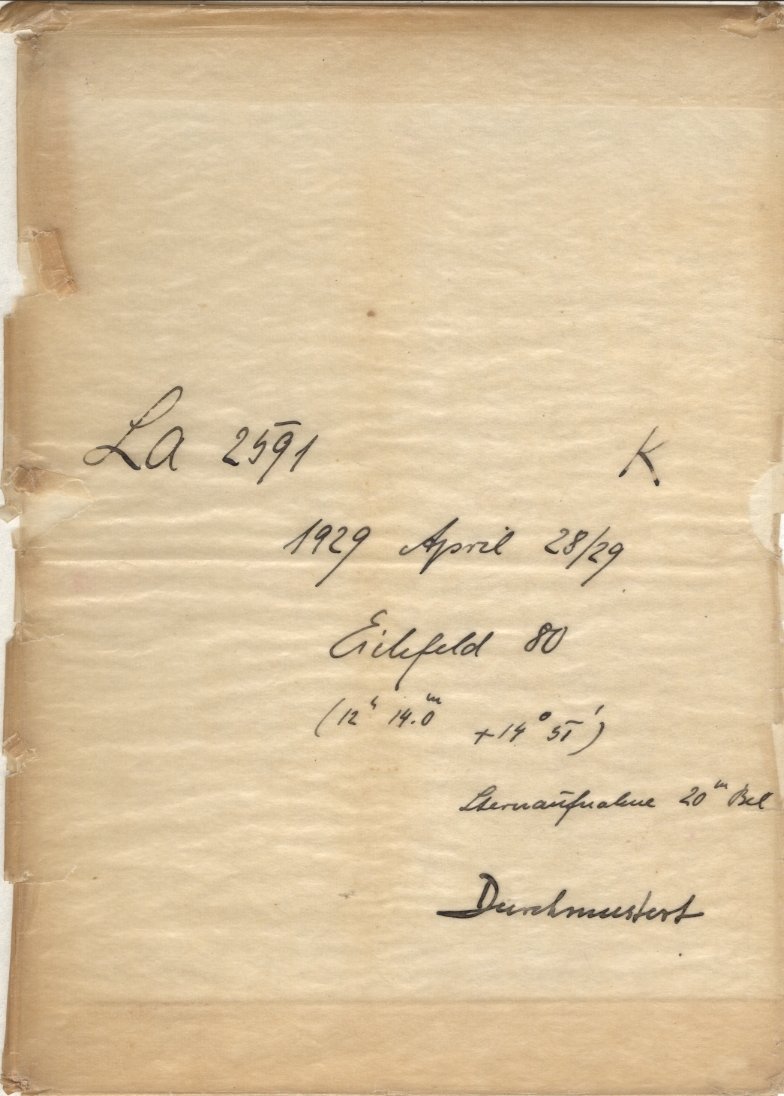 La 2591 K
1929 April 28/29
Eichfeld 80
(12ʰ 14.0ᵐ +14° 51')
Sternaufnahme 20ᵐ Bel
Durchmustert